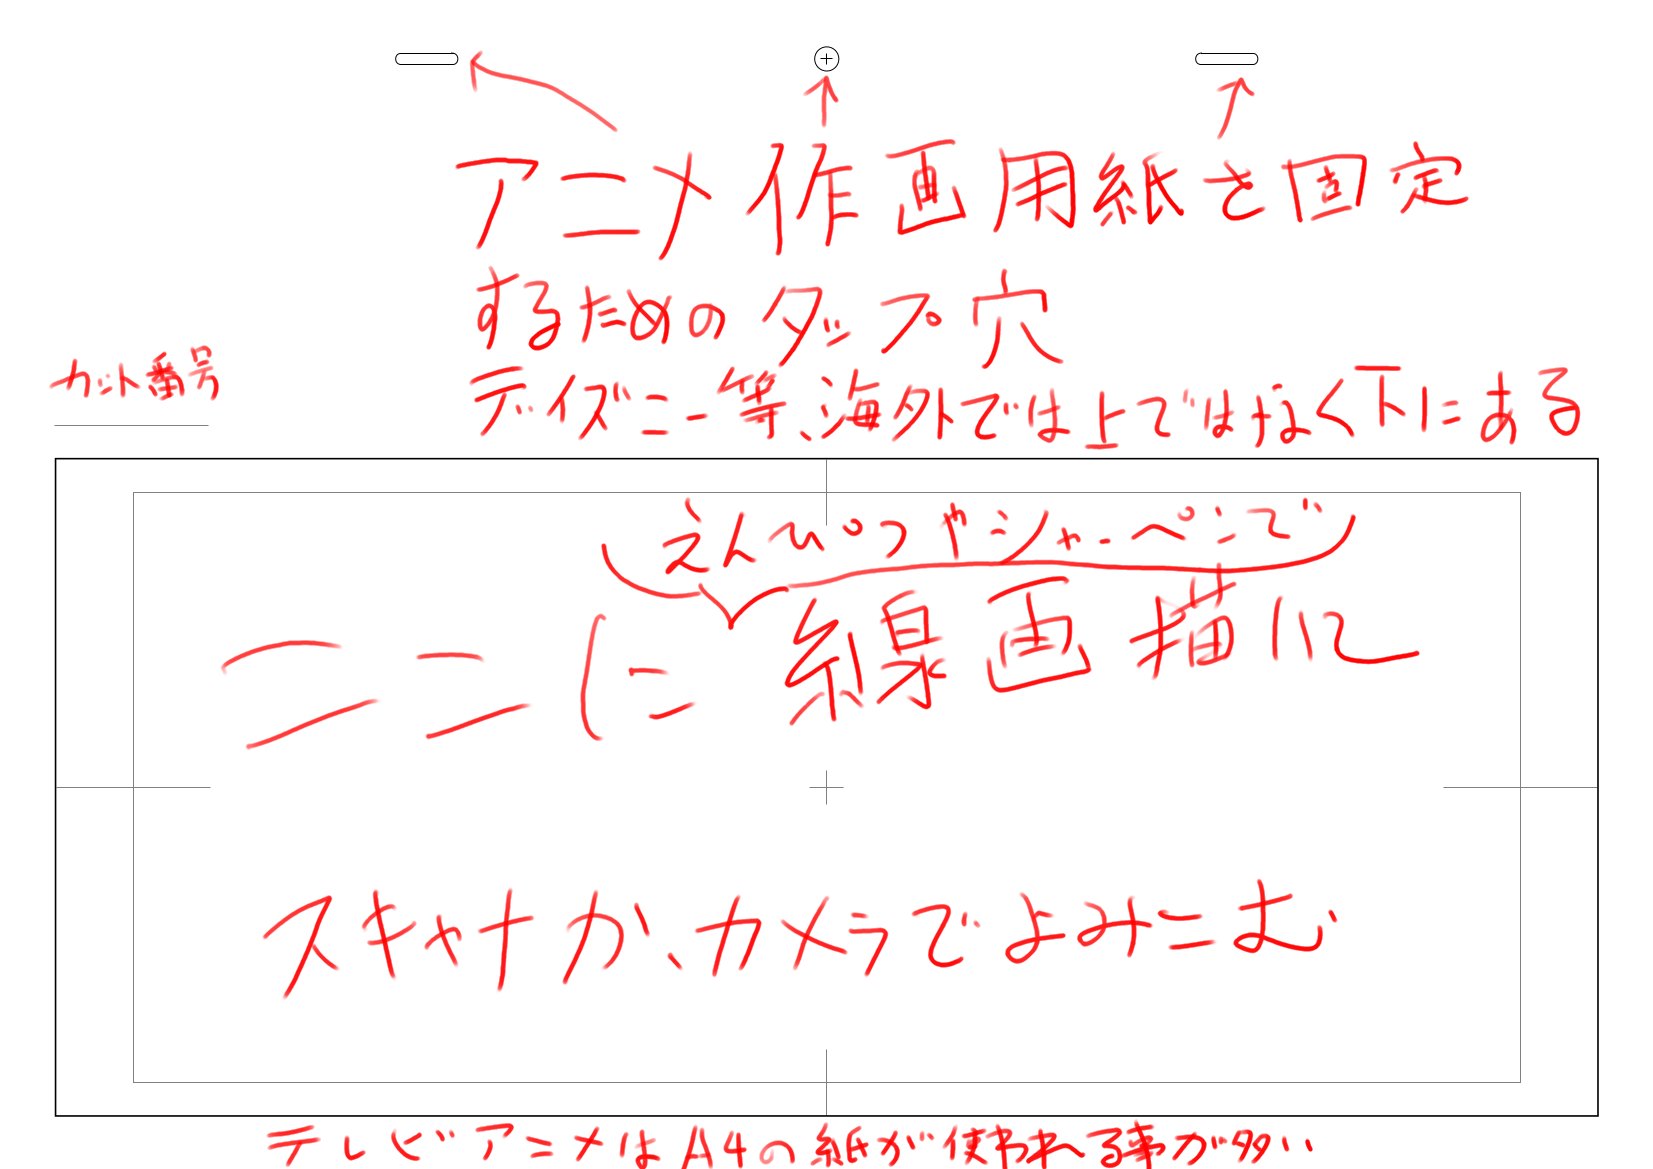 アニメ作画用紙を固定
するためのタップ穴
ディズニー等、海外では上ではなく下にある
カット番号
えんぴつやシャーペンで
ここに線画描いて
スキャナか、カメラでよみこむ
テレビアニメはA4の紙が使われる事が多い